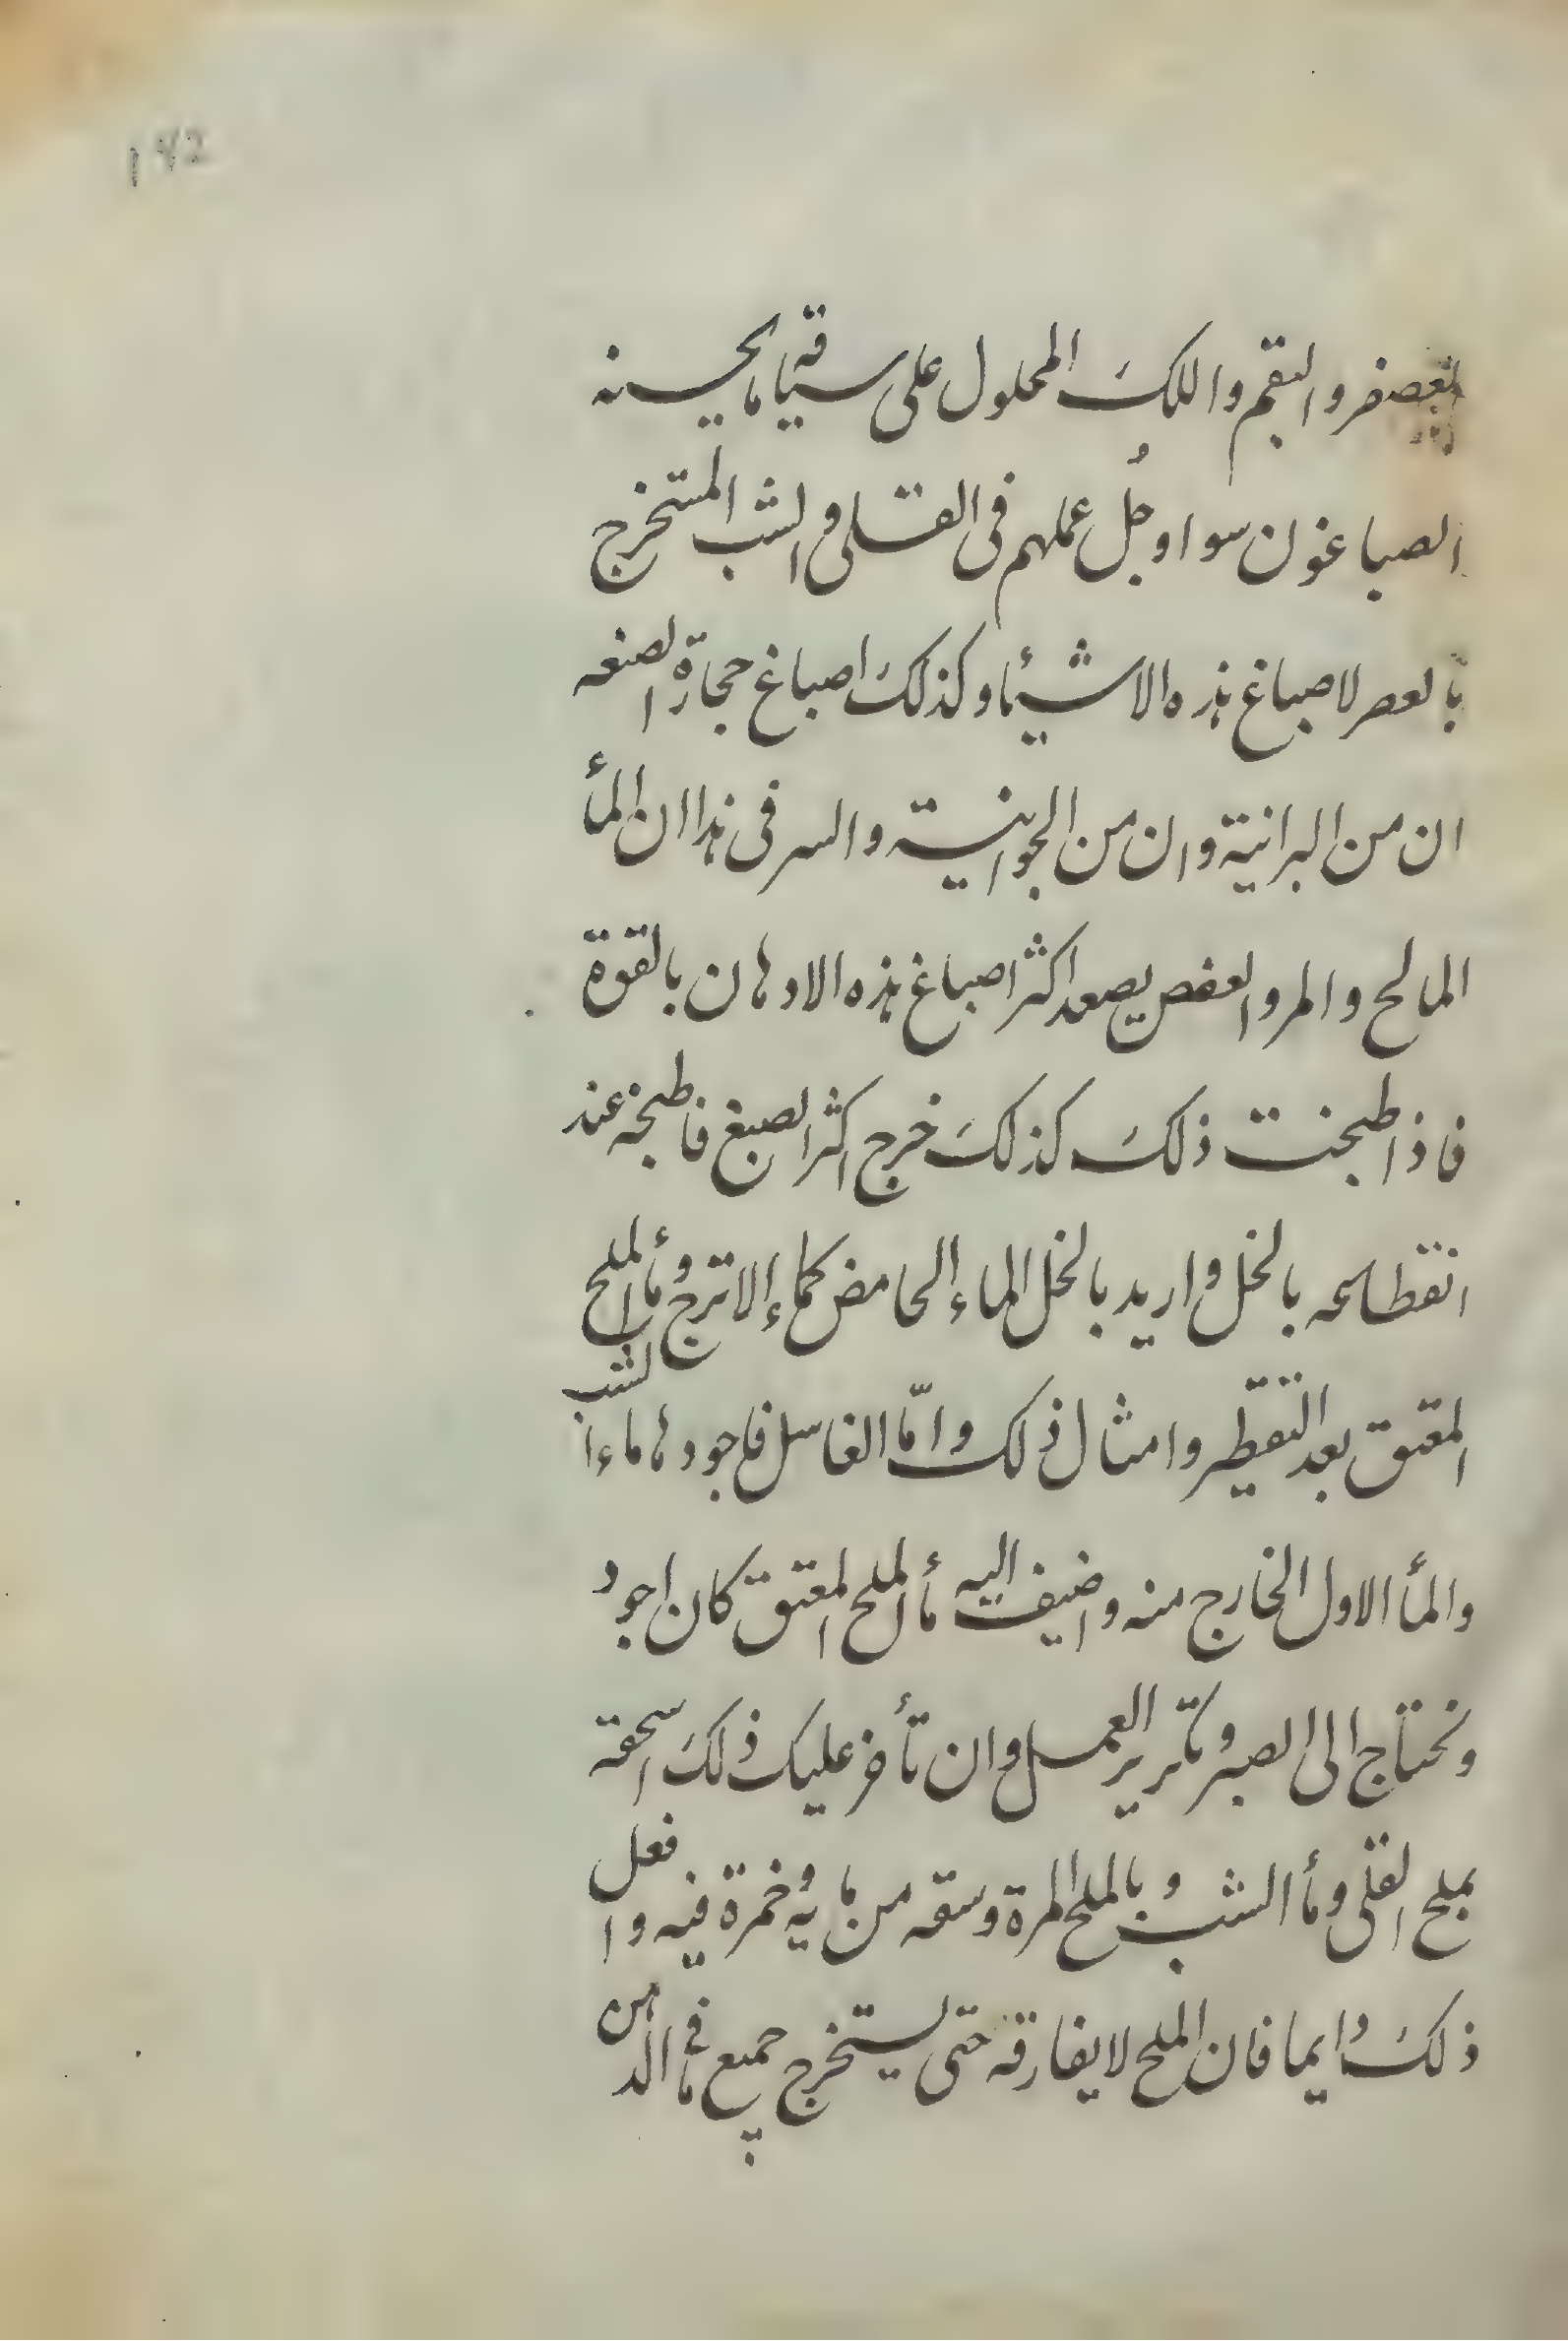 ١٩٢
العصفر والبقم واللك المحلول على سياقة ما يحسنه
الصباغون سوا وجُل عملهم فى القلى والشب المستخرج
بالعصر لاصباغ هذه الاشيئا وكذلك اصباغ حجارة الصنعه
ان من البرانية وان من الجوانية والسر فى هذا ان المأ
المالح والمر والعفص يصعد اكثر اصباغ هذه الادهان بالقوة
فاذا طبخت ذلك كذلك خرج اكثر الصبغ فاطبخه عند
انقطاعه بالخل واريد بالخل الماء الحامض كماء الاترج ومأ الملح
المعتق بعد التقطير وامثال ذلك وامّا الغاسل فاجودها ماء الشب
والمأ الاول الخارج منه واضيف اليه مأ الملح المعتق كان اجود
ونحتاج الى الصبر وتكرير العمل وان تأخر عليك ذلك اسحقه
بملح القلى ومأ الشب وبالملح المرة وسقه من مايه وخمرة فيه وافعل
ذلك دايما فان الملح لا يفارقه حتى يستخرج جميع ما فى الدهن